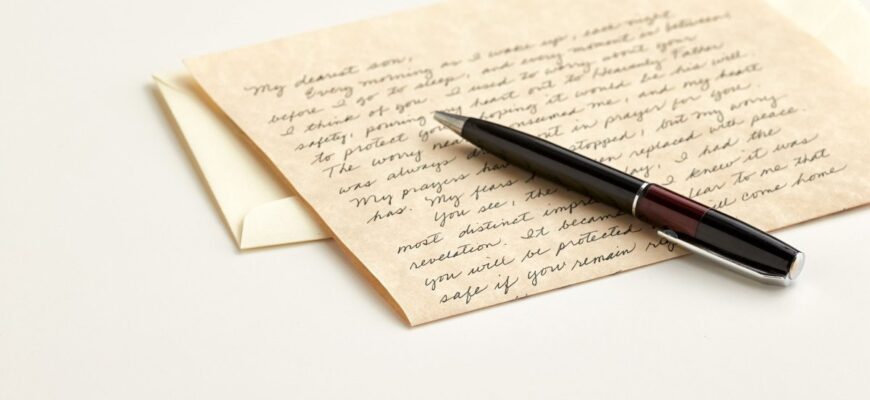 My dearest son,
Every morning as I wake up, each night
before I go to sleep, and every moment in between,
I think of you. I used to worry about your
safety, pouring my heart out to Heavenly Father
to protect you, hoping it would be his will.
The worry near consumed me, and my heart
was always drawn out in prayer for you.
My prayers have stopped, but my worry
has. My fears been replaced with peace.
You see, the day, I had the
most distinct impre I knew it was
revelation. It became lear to me that
you will be protected will come home
safe if you remain